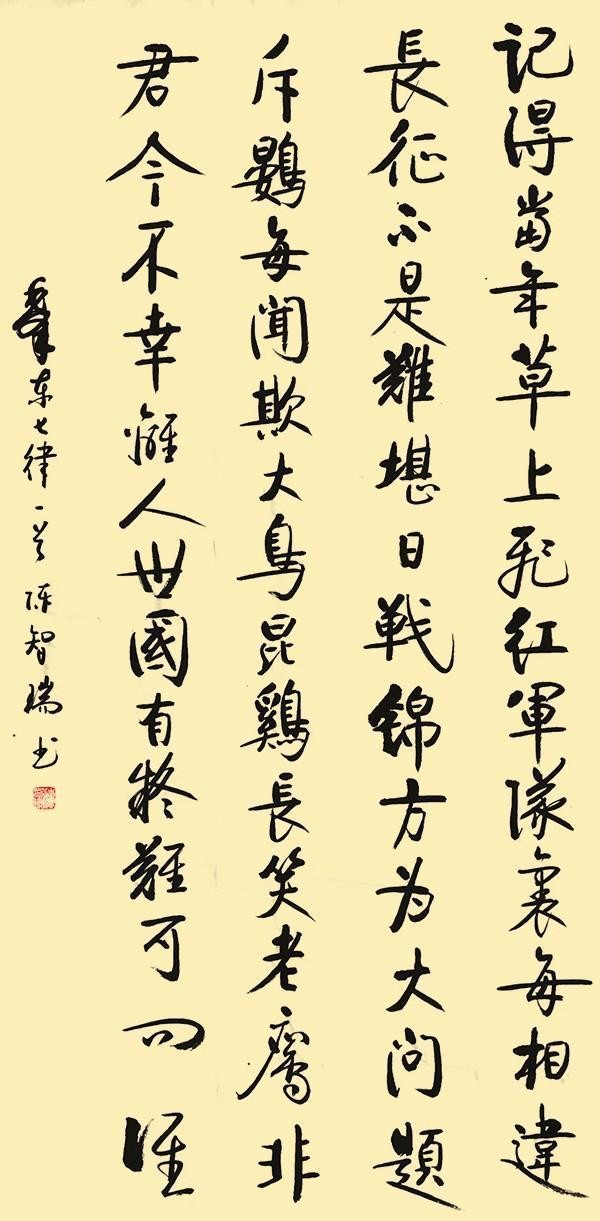 記得當年草上飛紅軍隊裏每相違
長征不是難堪日戰錦方为大问題
斥鷃每聞欺大鳥昆鷄長笑老鷹非
君今不幸離人世國有疑難可问誰
东七律一首陈智瑞书